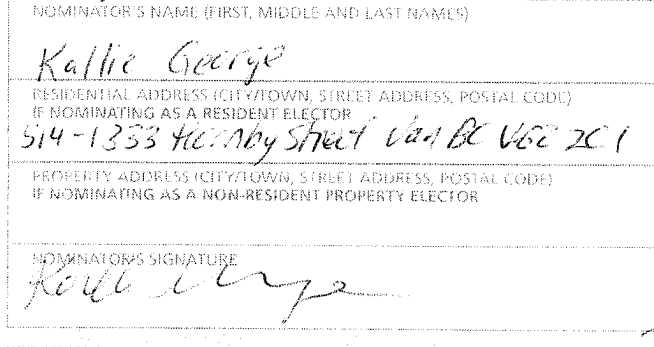 NOMINATOR'S NAME (FIRST, MIDDLE AND LAST NAMES)
Kallie George
RESIDENTIAL ADDRESS (CITY/TOWN, STREET ADDRESS, POSTAL CODE)
IF NOMINATING AS A RESIDENT ELECTOR
514-1333 Hornby Street Van BC V6Z 2C1
PROPERTY ADDRESS (CITY/TOWN, STREET ADDRESS, POSTAL CODE)
IF NOMINATING AS A NON-RESIDENT PROPERTY ELECTOR
NOMINATOR'S SIGNATURE